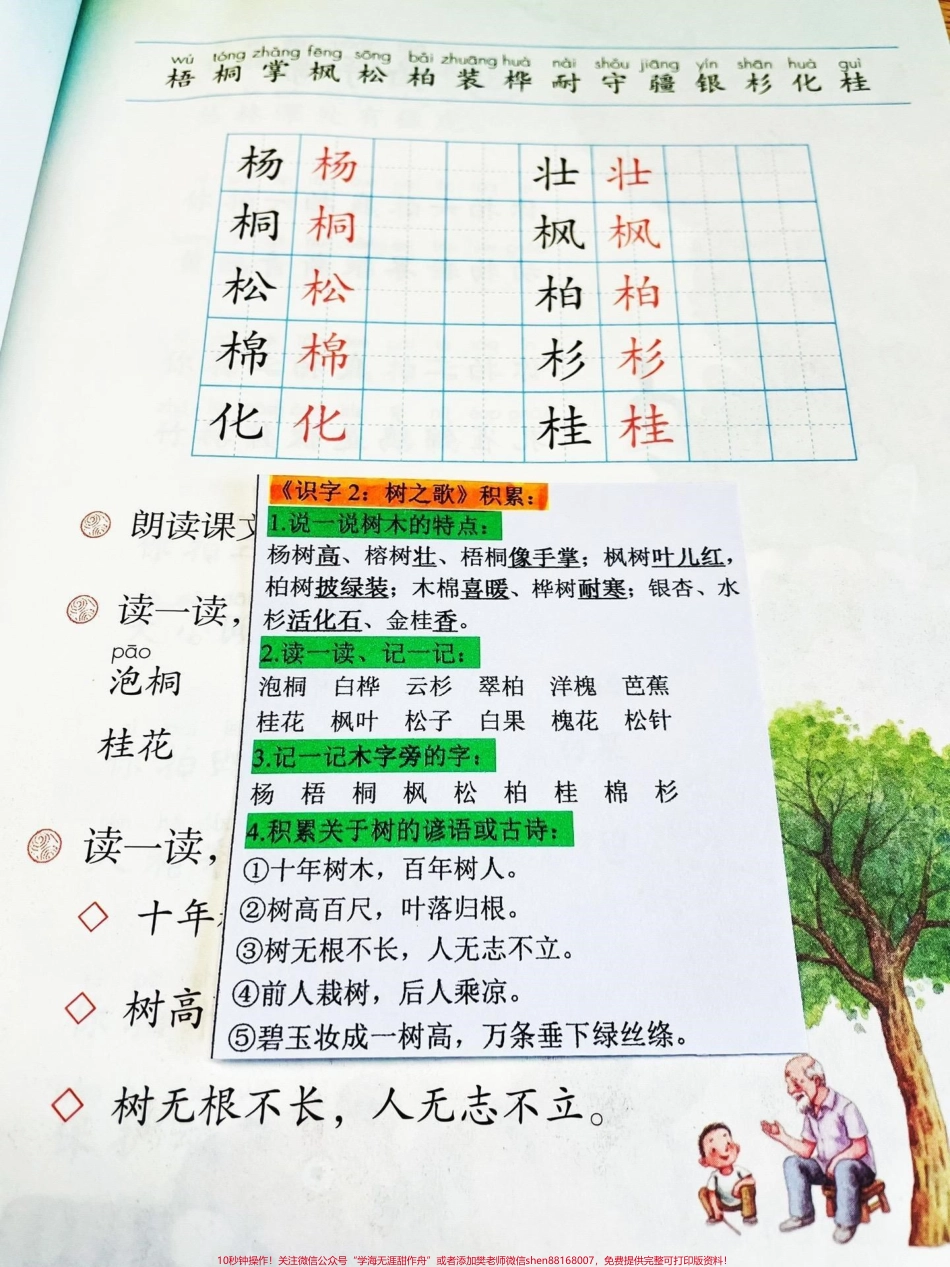 wú tóng zhǎng fēng sōng bǎi zhuāng huà nài shǒu jiāng yín shān huà guì
梧 桐 掌 枫 松 柏 装 桦 耐 守 疆 银 杉 化 桂
杨 杨 壮 壮
桐 桐 枫 枫
松 松 柏 柏
棉 棉 杉 杉
化 化 桂 桂
朗读课文
读一读，
pāo
泡桐
桂花
读一读，
十年
树高
《识字2：树之歌》积累：
1.说一说树木的特点：
杨树高、榕树壮、梧桐像手掌；枫树叶儿红，
柏树披绿装；木棉喜暖、桦树耐寒；银杏、水
杉活化石、金桂香。
2.读一读、记一记：
泡桐 白桦 云杉 翠柏 洋槐 芭蕉
桂花 枫叶 松子 白果 槐花 松针
3.记一记木字旁的字：
杨 梧 桐 枫 松 柏 桂 棉 杉
4.积累关于树的谚语或古诗：
①十年树木，百年树人。
②树高百尺，叶落归根。
③树无根不长，人无志不立。
④前人栽树，后人乘凉。
⑤碧玉妆成一树高，万条垂下绿丝绦。
树无根不长，人无志不立。
10秒钟操作！关注微信公众号“学海无涯甜作舟”或者添加樊老师微信shen88168007，免费提供完整可打印版资料！